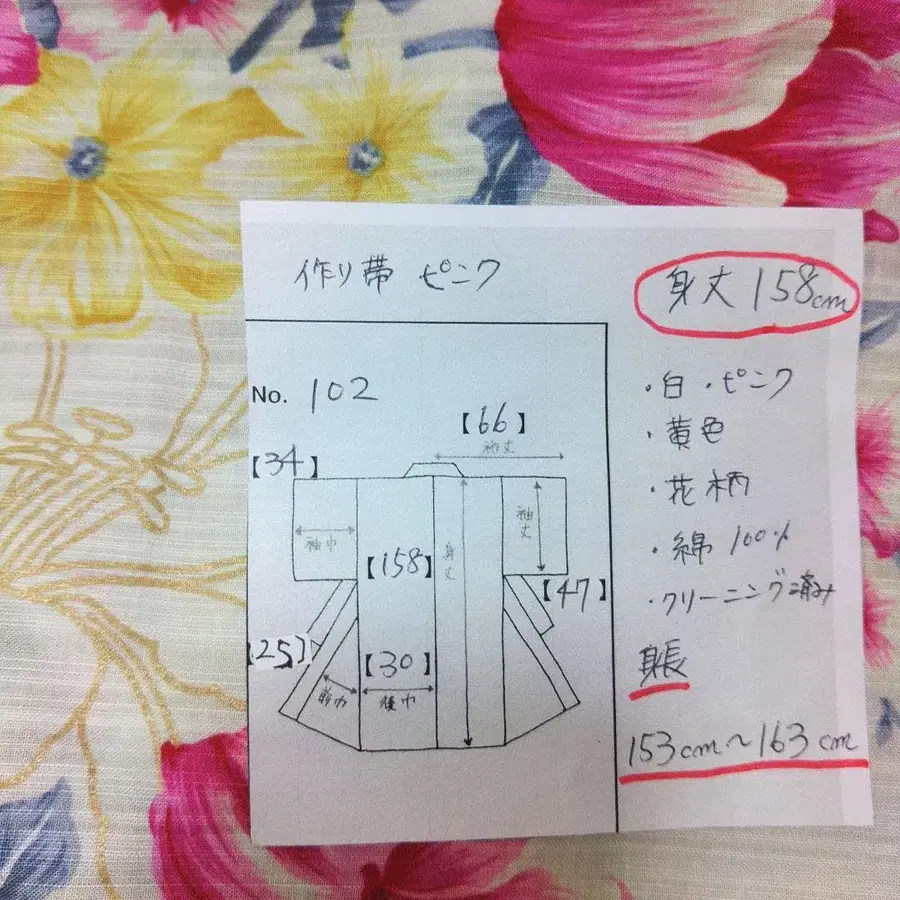 作り帯 ピンク
No. 102
【66】
裄丈
【34】
袖巾
袖丈
【158】
身丈
【47】
【25】
【30】
前巾
後巾
身丈 158cm
・白・ピンク
・黄色
・花柄
・綿 100%
・クリーニング済み
身長
153cm〜163cm